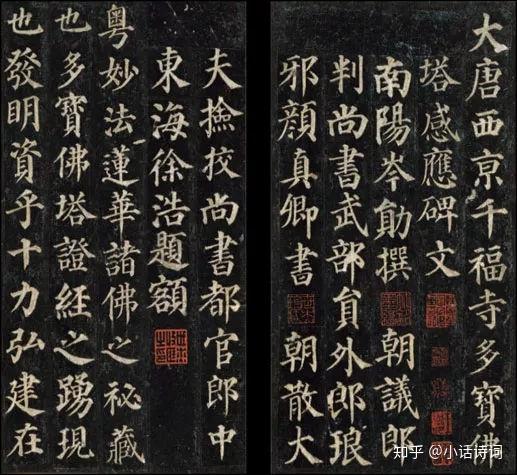 大唐西亰千福寺多寶佛
塔感應碑文
南陽岑勛撰 朝議郎
判尚書武部員外郎琅
邪顏真卿書 朝散大
夫撿挍尚書都官郎中
東海徐浩題額
粵妙法蓮華諸佛之祕藏
也多寶佛塔證經之踴現
也發明資乎十力弘建在
知乎 @小话诗词